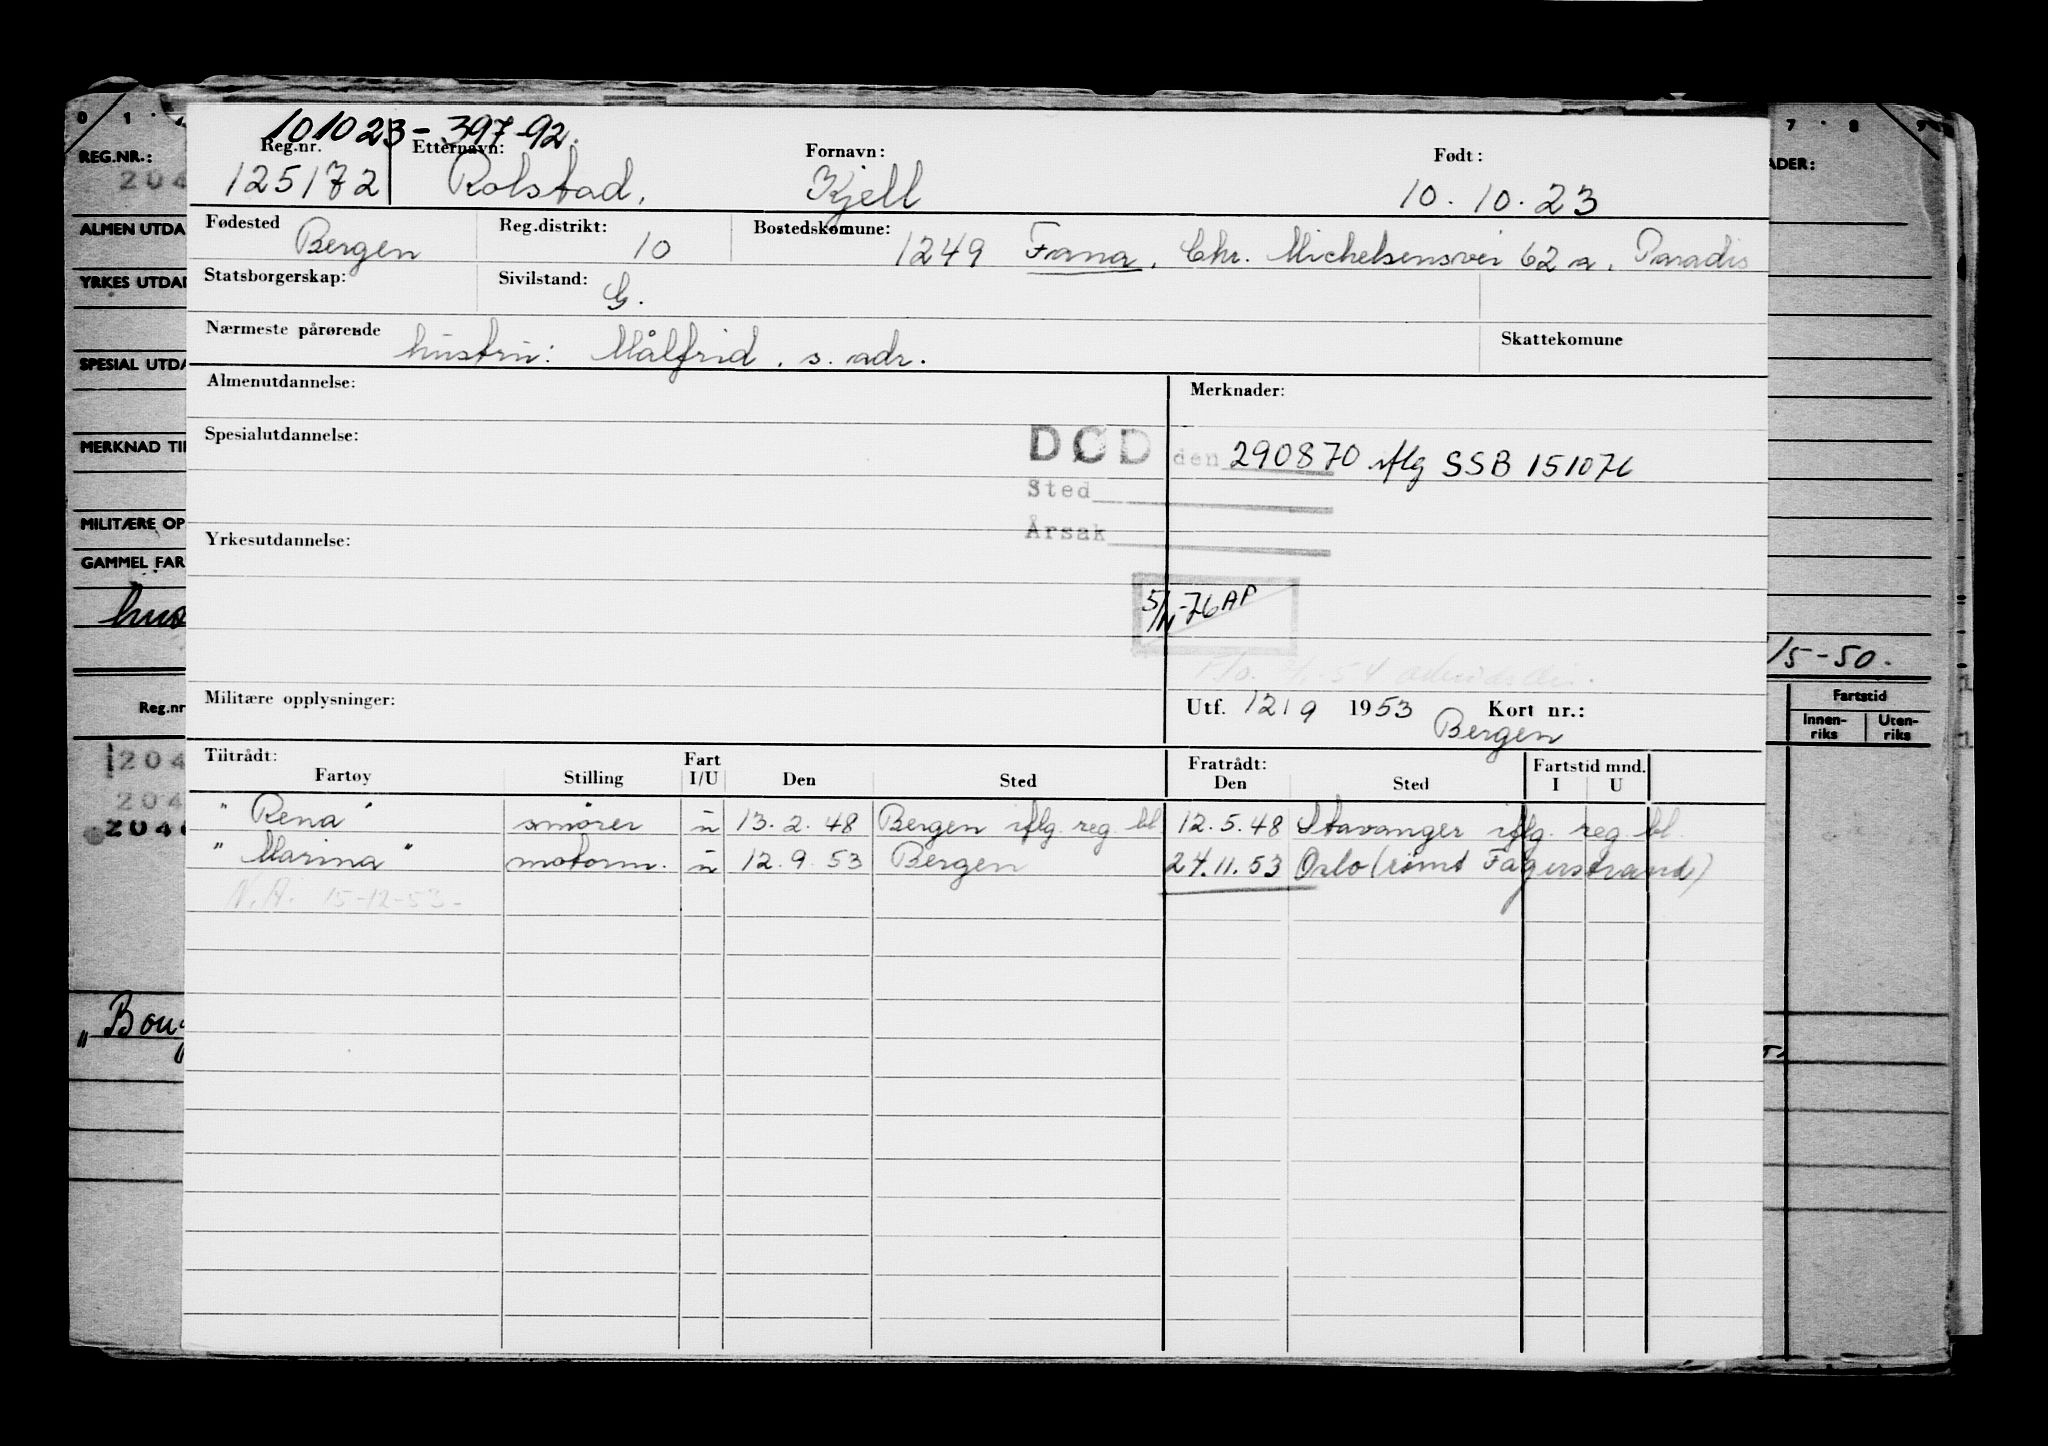 101023-397-92.
Reg.nr. Etternavn: Fornavn: Født:
125172 Rolstad, Kjell 10.10.23
Fødested Bergen Reg.distrikt: 10 Bostedskomune: 1249 Fana, Chr. Michelsensvei 62 a, Paradis
Statsborgerskap: Sivilstand: G.
Nærmeste pårørende hustru: Målfrid, s. adr. Skattekomune
Almenutdannelse: Merknader:
Spesialutdannelse: DØD den 290870 iflg SSB 151076
Sted
Årsak
Yrkesutdannelse:
5/11-76 AP
Militære opplysninger: Utf. 12/9 1953 Kort nr.:
Bergen
Tiltrådt: Fart Fratrådt: Fartstid mnd.
Fartøy Stilling I/U Den Sted Den Sted I U
"Rena" smører u 13.2.48 Bergen iflg. reg. bl 12.5.48 Stavanger iflg. reg. bl.
"Marina" motorm. u 12.9.53 Bergen 24.11.53 Oslo (rømt Fagerstrand)
N.A. 15-12-53-
0 1
REG.NR.:
204
ALMEN UTDA
YRKES UTDAN
SPESIAL UTDA
MERKNAD TIL
MILITÆRE OP
GAMMEL FAR
Reg.nr
204
204
204
"Boug
7 8 9
ADER:
15-50.
Fartstid
Innen-riks Uten-riks